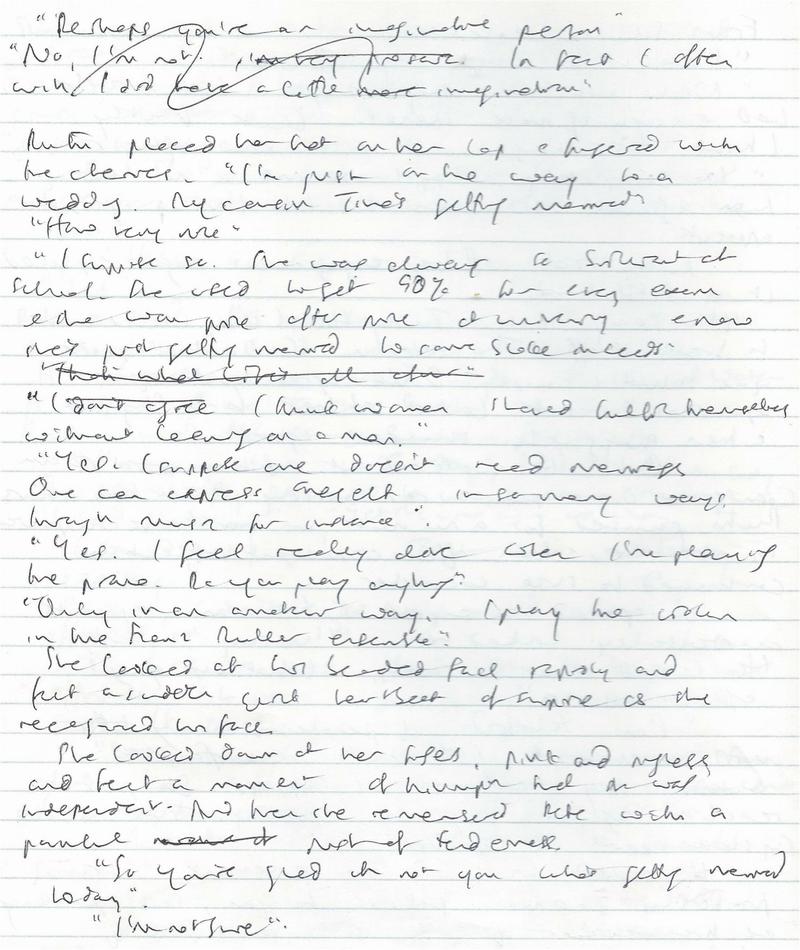 "Perhaps you're an imaginative person"
"No, I'm not. I'm very prosaic. In fact I often
wish I did have a little more imagination"
Ruth placed her hat on her lap & fingered with
the cherries. "I'm just on the way to a
wedding. My cousin Tina's getting married"
"How very nice"
"I suppose so. She was always so brilliant at
school. She used to get 90% for every exam
& she won prize after prize at university & now
she's just getting married to some
"That's what life's all about"
"I don't agree I think women should fulfil themselves
without leaning on a man."
"Yes. I suppose one doesn't need marriage
One can express oneself in so many ways,
through music for instance".
"Yes. I feel really alive when I'm playing
the piano. Do you play anything?"
"Only in an amateur way. I play the violin
in the Franz Muller ensemble".
She looked at his bearded face and
felt a sudden heartbeat of surprise as she
recognised his face.
She looked down at her fingers, pink and ringless
and felt a moment of triumph that she was
independent. And then she remembered Pete with a
painful moment of rush of tenderness
"So you're glad it's not you who's getting married
today".
"I'm not sure".